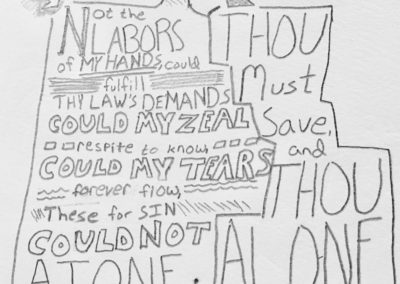 Not the
LABORS
of MY HANDS could
fulfill
THY LAW'S DEMANDS
COULD MY ZEAL
respite to know,
COULD MY TEARS
forever flow,
These for SIN
COULD NOT
ATONE.
THOU
Must
Save,
and
THOU
ALONE